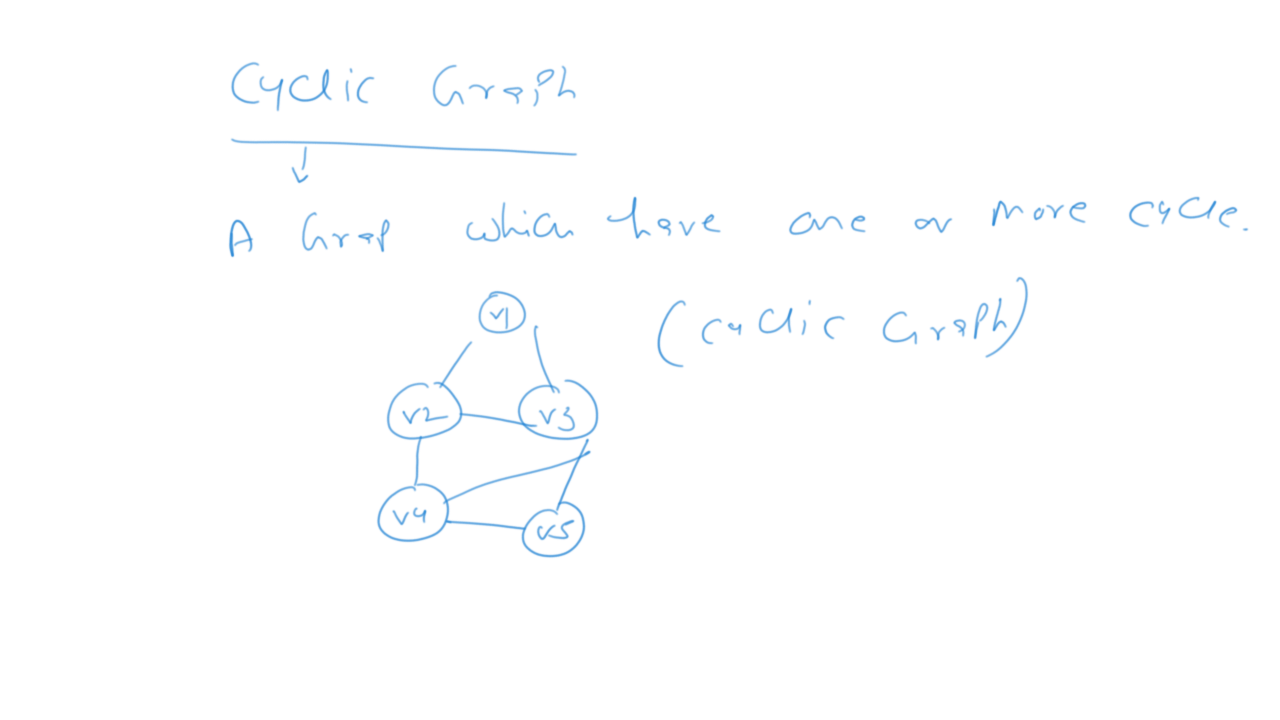 Cyclic Graph
A Grap which have one or more cycle.
(cyclic Graph)
v1
v2 v3
v4 v5